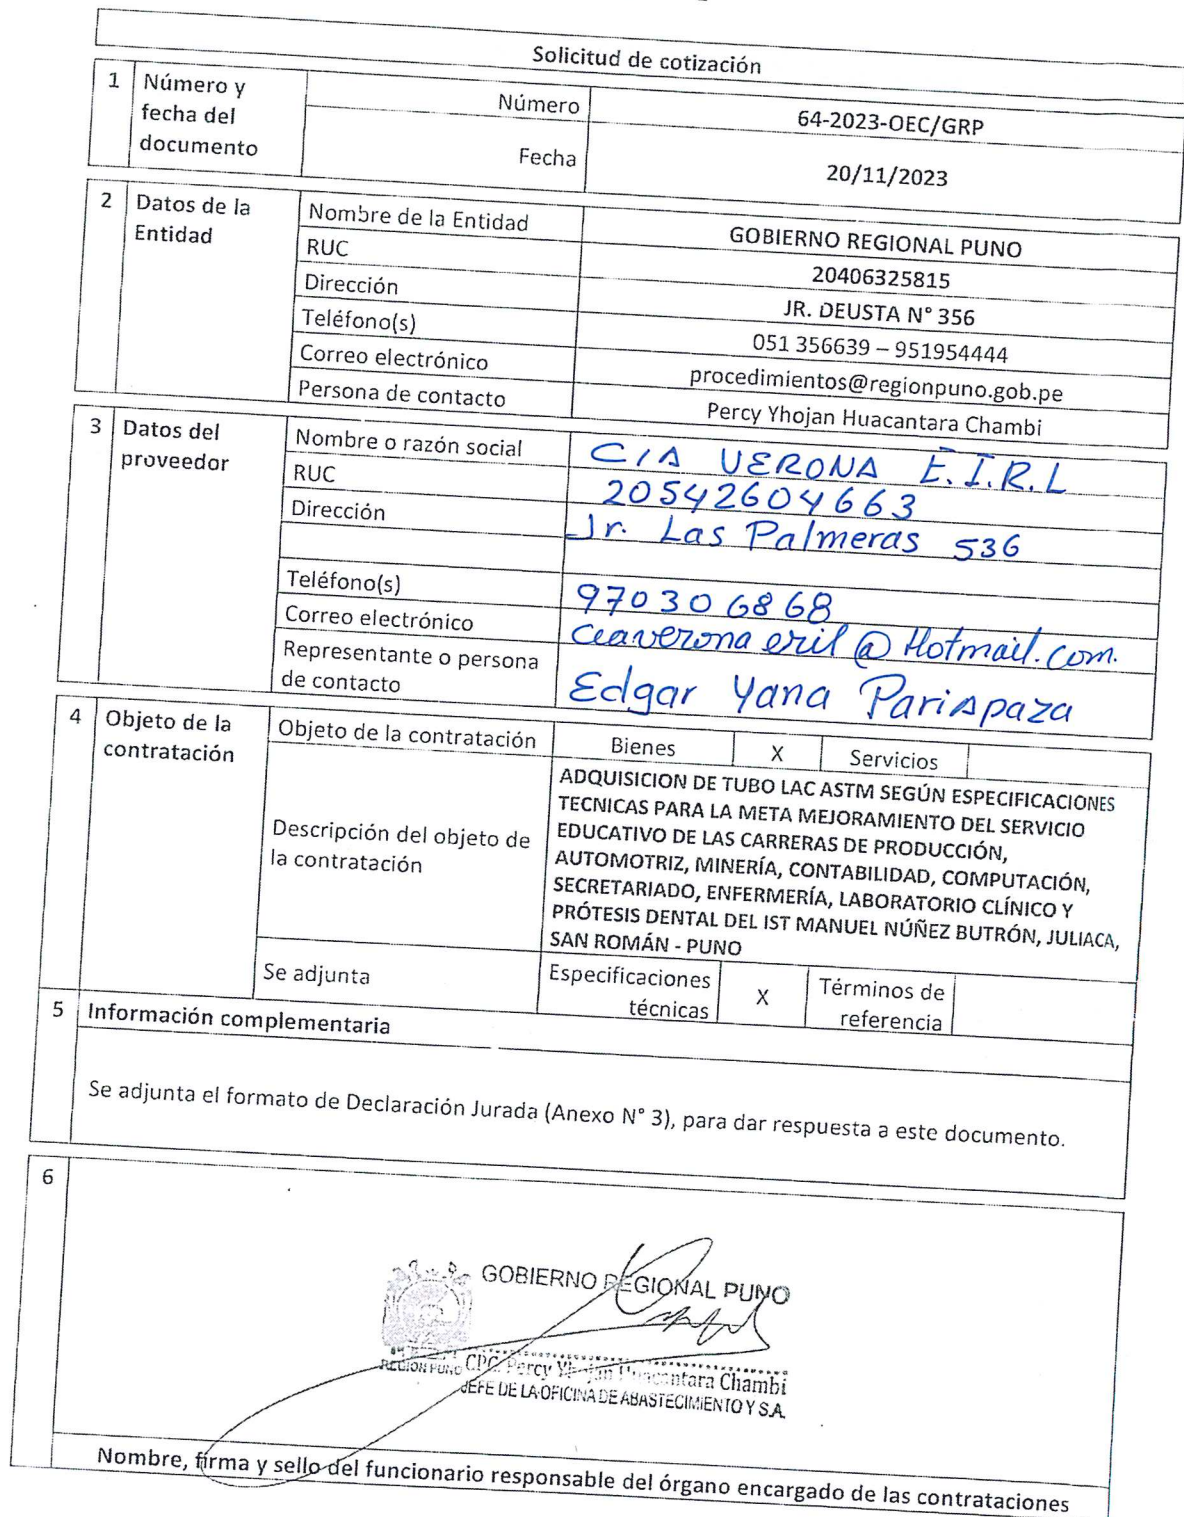 Solicitud de cotización
1 Número y fecha del documento
Número 64-2023-OEC/GRP
Fecha 20/11/2023
2 Datos de la Entidad
Nombre de la Entidad GOBIERNO REGIONAL PUNO
RUC 20406325815
Dirección JR. DEUSTA N° 356
Teléfono(s) 051 356639 – 951954444
Correo electrónico procedimientos@regionpuno.gob.pe
Persona de contacto Percy Yhojan Huacantara Chambi
3 Datos del proveedor
Nombre o razón social CIA VERONA E.I.R.L
RUC 20542604663
Dirección Jr. Las Palmeras 536
Teléfono(s) 970306868
Correo electrónico ciaverona eril @ Hotmail.com.
Representante o persona de contacto Edgar Yana Pariapaza
4 Objeto de la contratación
Objeto de la contratación Bienes X Servicios
Descripción del objeto de la contratación
ADQUISICION DE TUBO LAC ASTM SEGÚN ESPECIFICACIONES
TECNICAS PARA LA META MEJORAMIENTO DEL SERVICIO
EDUCATIVO DE LAS CARRERAS DE PRODUCCIÓN,
AUTOMOTRIZ, MINERÍA, CONTABILIDAD, COMPUTACIÓN,
SECRETARIADO, ENFERMERÍA, LABORATORIO CLÍNICO Y
PRÓTESIS DENTAL DEL IST MANUEL NÚÑEZ BUTRÓN, JULIACA,
SAN ROMÁN - PUNO
Se adjunta Especificaciones técnicas X Términos de referencia
5 Información complementaria
Se adjunta el formato de Declaración Jurada (Anexo N° 3), para dar respuesta a este documento.
6
GOBIERNO REGIONAL PUNO
REGION PUNO
CPC. Percy Yhojan Huacantara Chambi
JEFE DE LA OFICINA DE ABASTECIMIENTO Y S.A.
Nombre, firma y sello del funcionario responsable del órgano encargado de las contrataciones